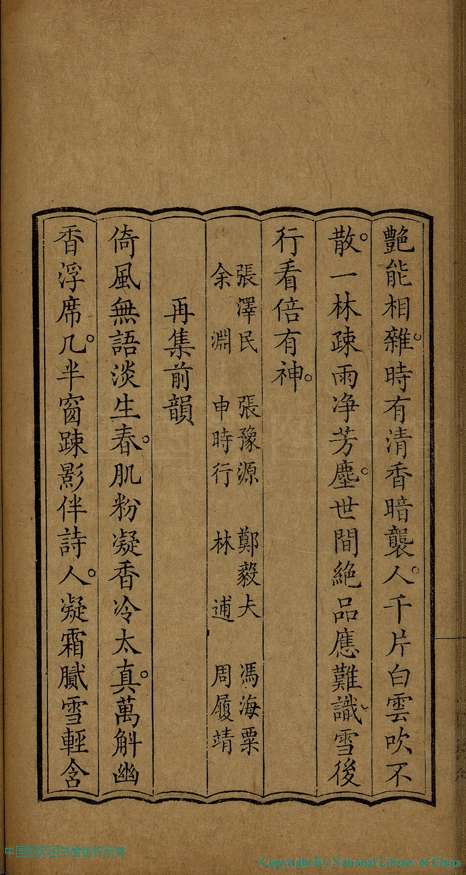 艷能相雜時有清香暗襲人。千片白雲吹不
散。一林疎雨净芳塵。世間絕品應難識雪後
行看倍有神。
張澤民　張豫源　鄭毅夫　馮海粟
余淵　申時行　林逋　周履靖
再集前韻
倚風無語淡生春。肌粉凝香冷太真。萬斛幽
香浮席几。半窗踈影伴詩人。凝霜膩雪輕含
Copyright By National Library of China